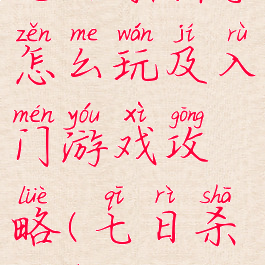 zěn me wán jí rù
怎么玩及入
mén yóu xì gōng
门游戏攻
lüè qī rì shā
略(七日杀